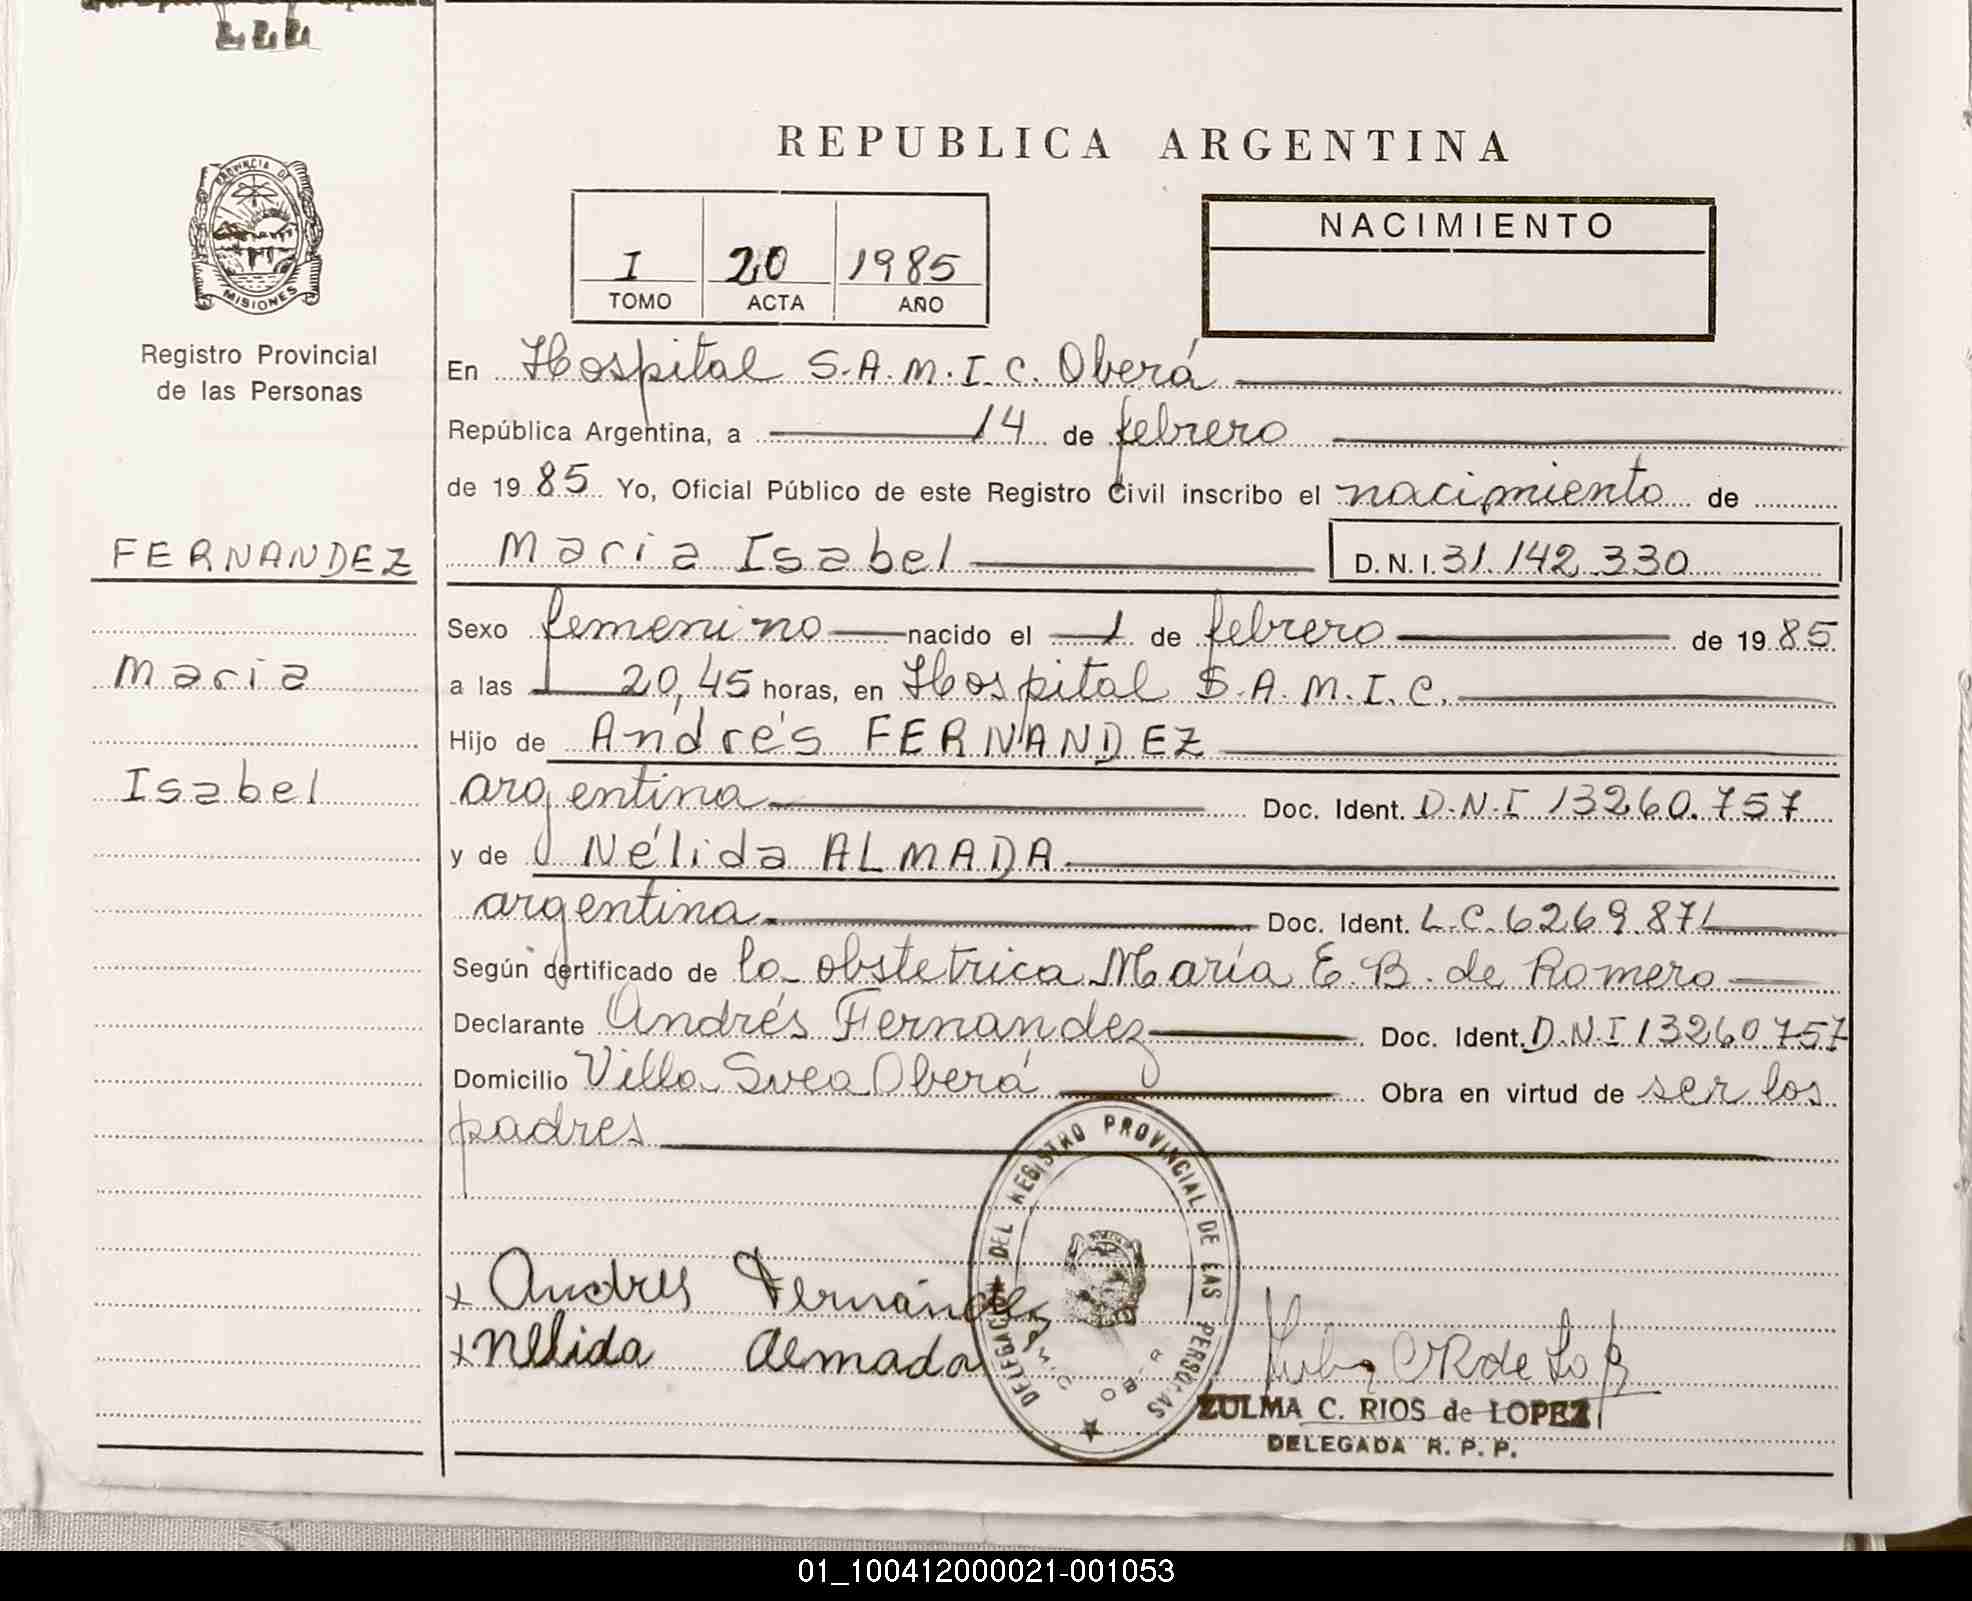 REPUBLICA ARGENTINA
PROVINCIA DE
MISIONES
Registro Provincial
de las Personas
I 20 1985
TOMO ACTA AÑO
NACIMIENTO
En Hospital S.A.M.I.C. Oberá
República Argentina, a 14 de febrero
de 1985 Yo, Oficial Público de este Registro Civil inscribo el nacimiento de
FERNANDEZ
Maria
Isabel
Maria Isabel D.N.I. 31.142.330
Sexo femenino nacido el 1 de febrero de 1985
a las 20,45 horas, en Hospital S.A.M.I.C.
Hijo de Andrés FERNANDEZ
argentina Doc. Ident. D.N.I 13260.757
y de Nélida ALMADA
argentina Doc. Ident. L.C. 6269.871
Según certificado de la obstetrica María E. B. de Romero
Declarante Andrés Fernandez Doc. Ident. D.N.I 13260757
Domicilio Villa Svea Oberá Obra en virtud de ser los
padres
x Andres Fernández
x Nélida Almada
DELEGACION DEL REGISTRO PROVINCIAL DE LAS PERSONAS
ZULMA C. RIOS de LOPEZ
DELEGADA R. P. P.
01_100412000021-001053